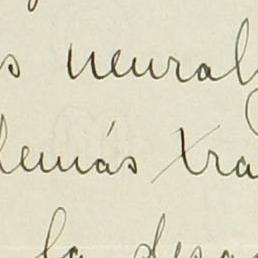 s neural
demás tra
la desa